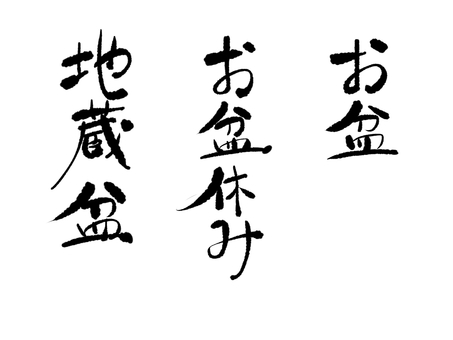 お盆
お盆休み
地蔵盆